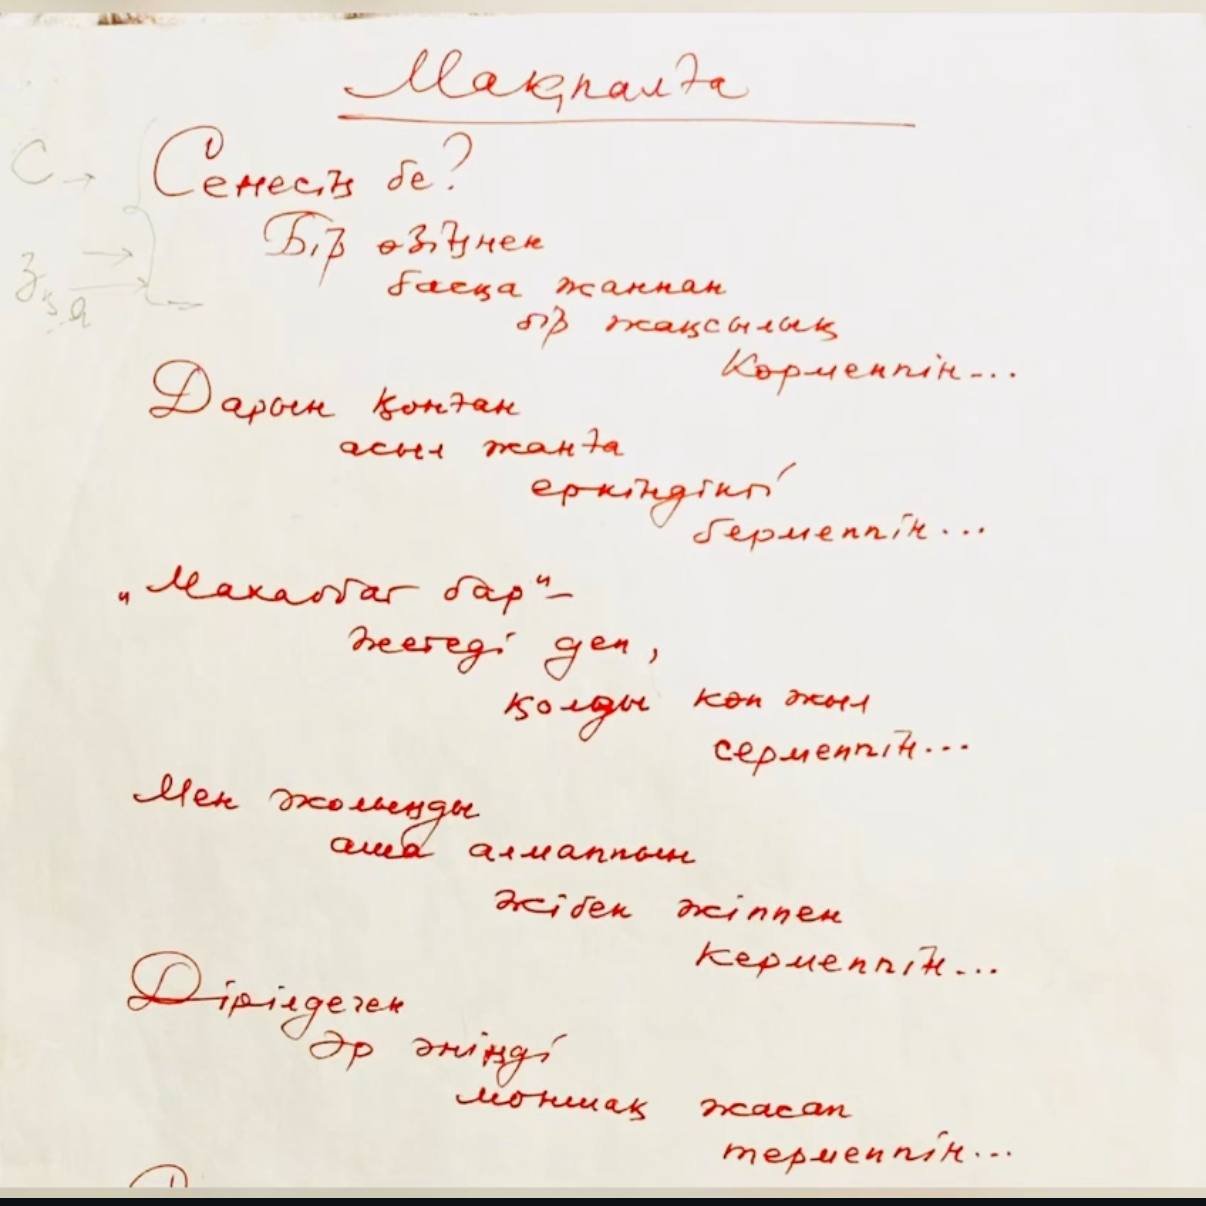 Мақпалға
Сенесің бе?
Бір өзіңнен
басқа жаннан
бір жақсылық
Көрмеппін...
Дарын қонған
асыл жанға
еркіндікті
бермеппін...
„Махаббат бар“ –
жетеді деп,
қолды көп жыл
сермеппін...
Мен жолыңды
аша алмаппын
Жібек жіппен
Кермеппін...
Дірілдеген
Әр әніңді
моншақ жасап
термеппін...